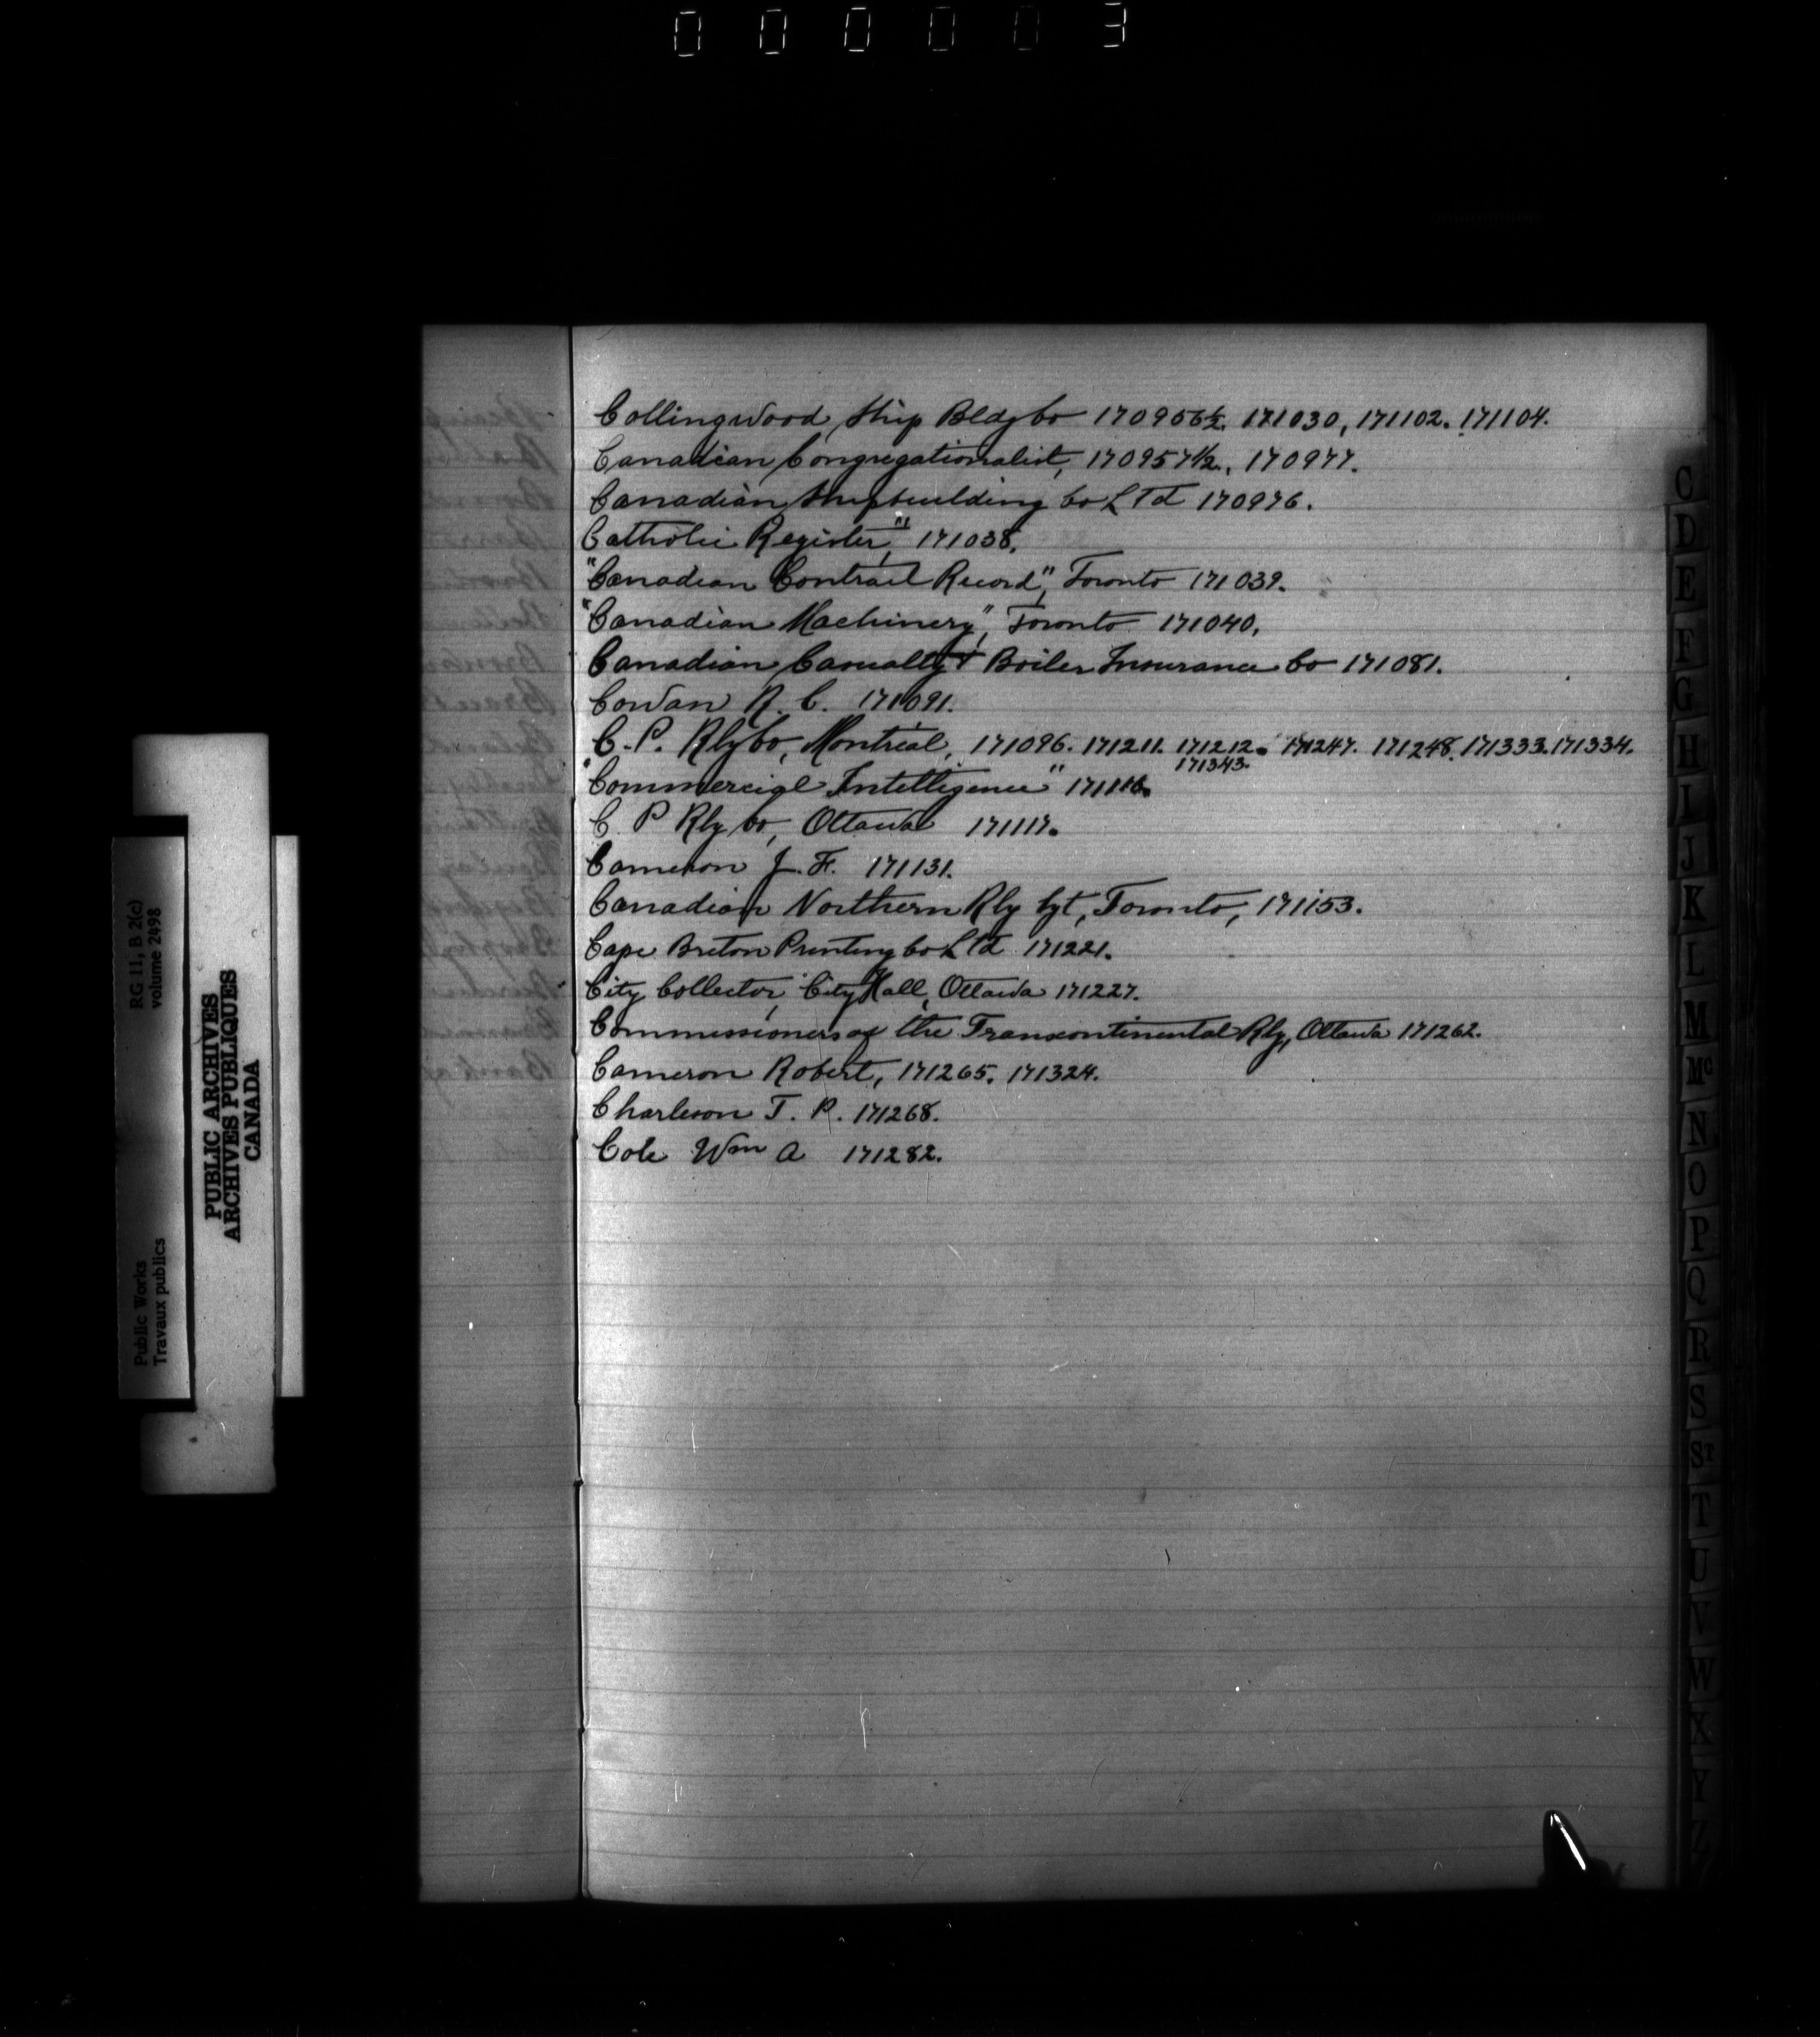 000003
Collingwood Ship Bldg Co 170956½. 171030, 171102. 171104.
Canadian Congregationalist, 170957½., 170977.
Canadian Shipbuilding Co Ltd 170976.
Catholic Register", 171038.
"Canadian Contract Record", Toronto 171039.
"Canadian Machinery", Toronto 171040.
Canadian Casualty & Boiler Insurance Co 171081.
Cowan R. C. 171091.
C. P. Rly Co, Montreal, 171096. 171211. 171212. 171247. 171248. 171333. 171334.
171343.
"Commercial Intelligence" 171116.
C. P Rly Co, Ottawa 171117.
Cameron J. F. 171131.
Canadian Northern Rly Cy't, Toronto, 171153.
Cape Breton Printing Co Ltd 171221.
City Collector, City Hall, Ottawa 171227.
Commissioners of the Transcontinental Rly, Ottawa 171262.
Cameron Robert, 171265. 171324.
Charleson T. P. 171268.
Cole Wm A 171282.
C
D
E
F
G
H
I
J
K
L
M
Mc
N
O
P
Q
R
S
ST
T
U
V
W
X
Y
Z
RG 11, B 2(c)
volume 2498
Public Works
Travaux publics
PUBLIC ARCHIVES
ARCHIVES PUBLIQUES
CANADA